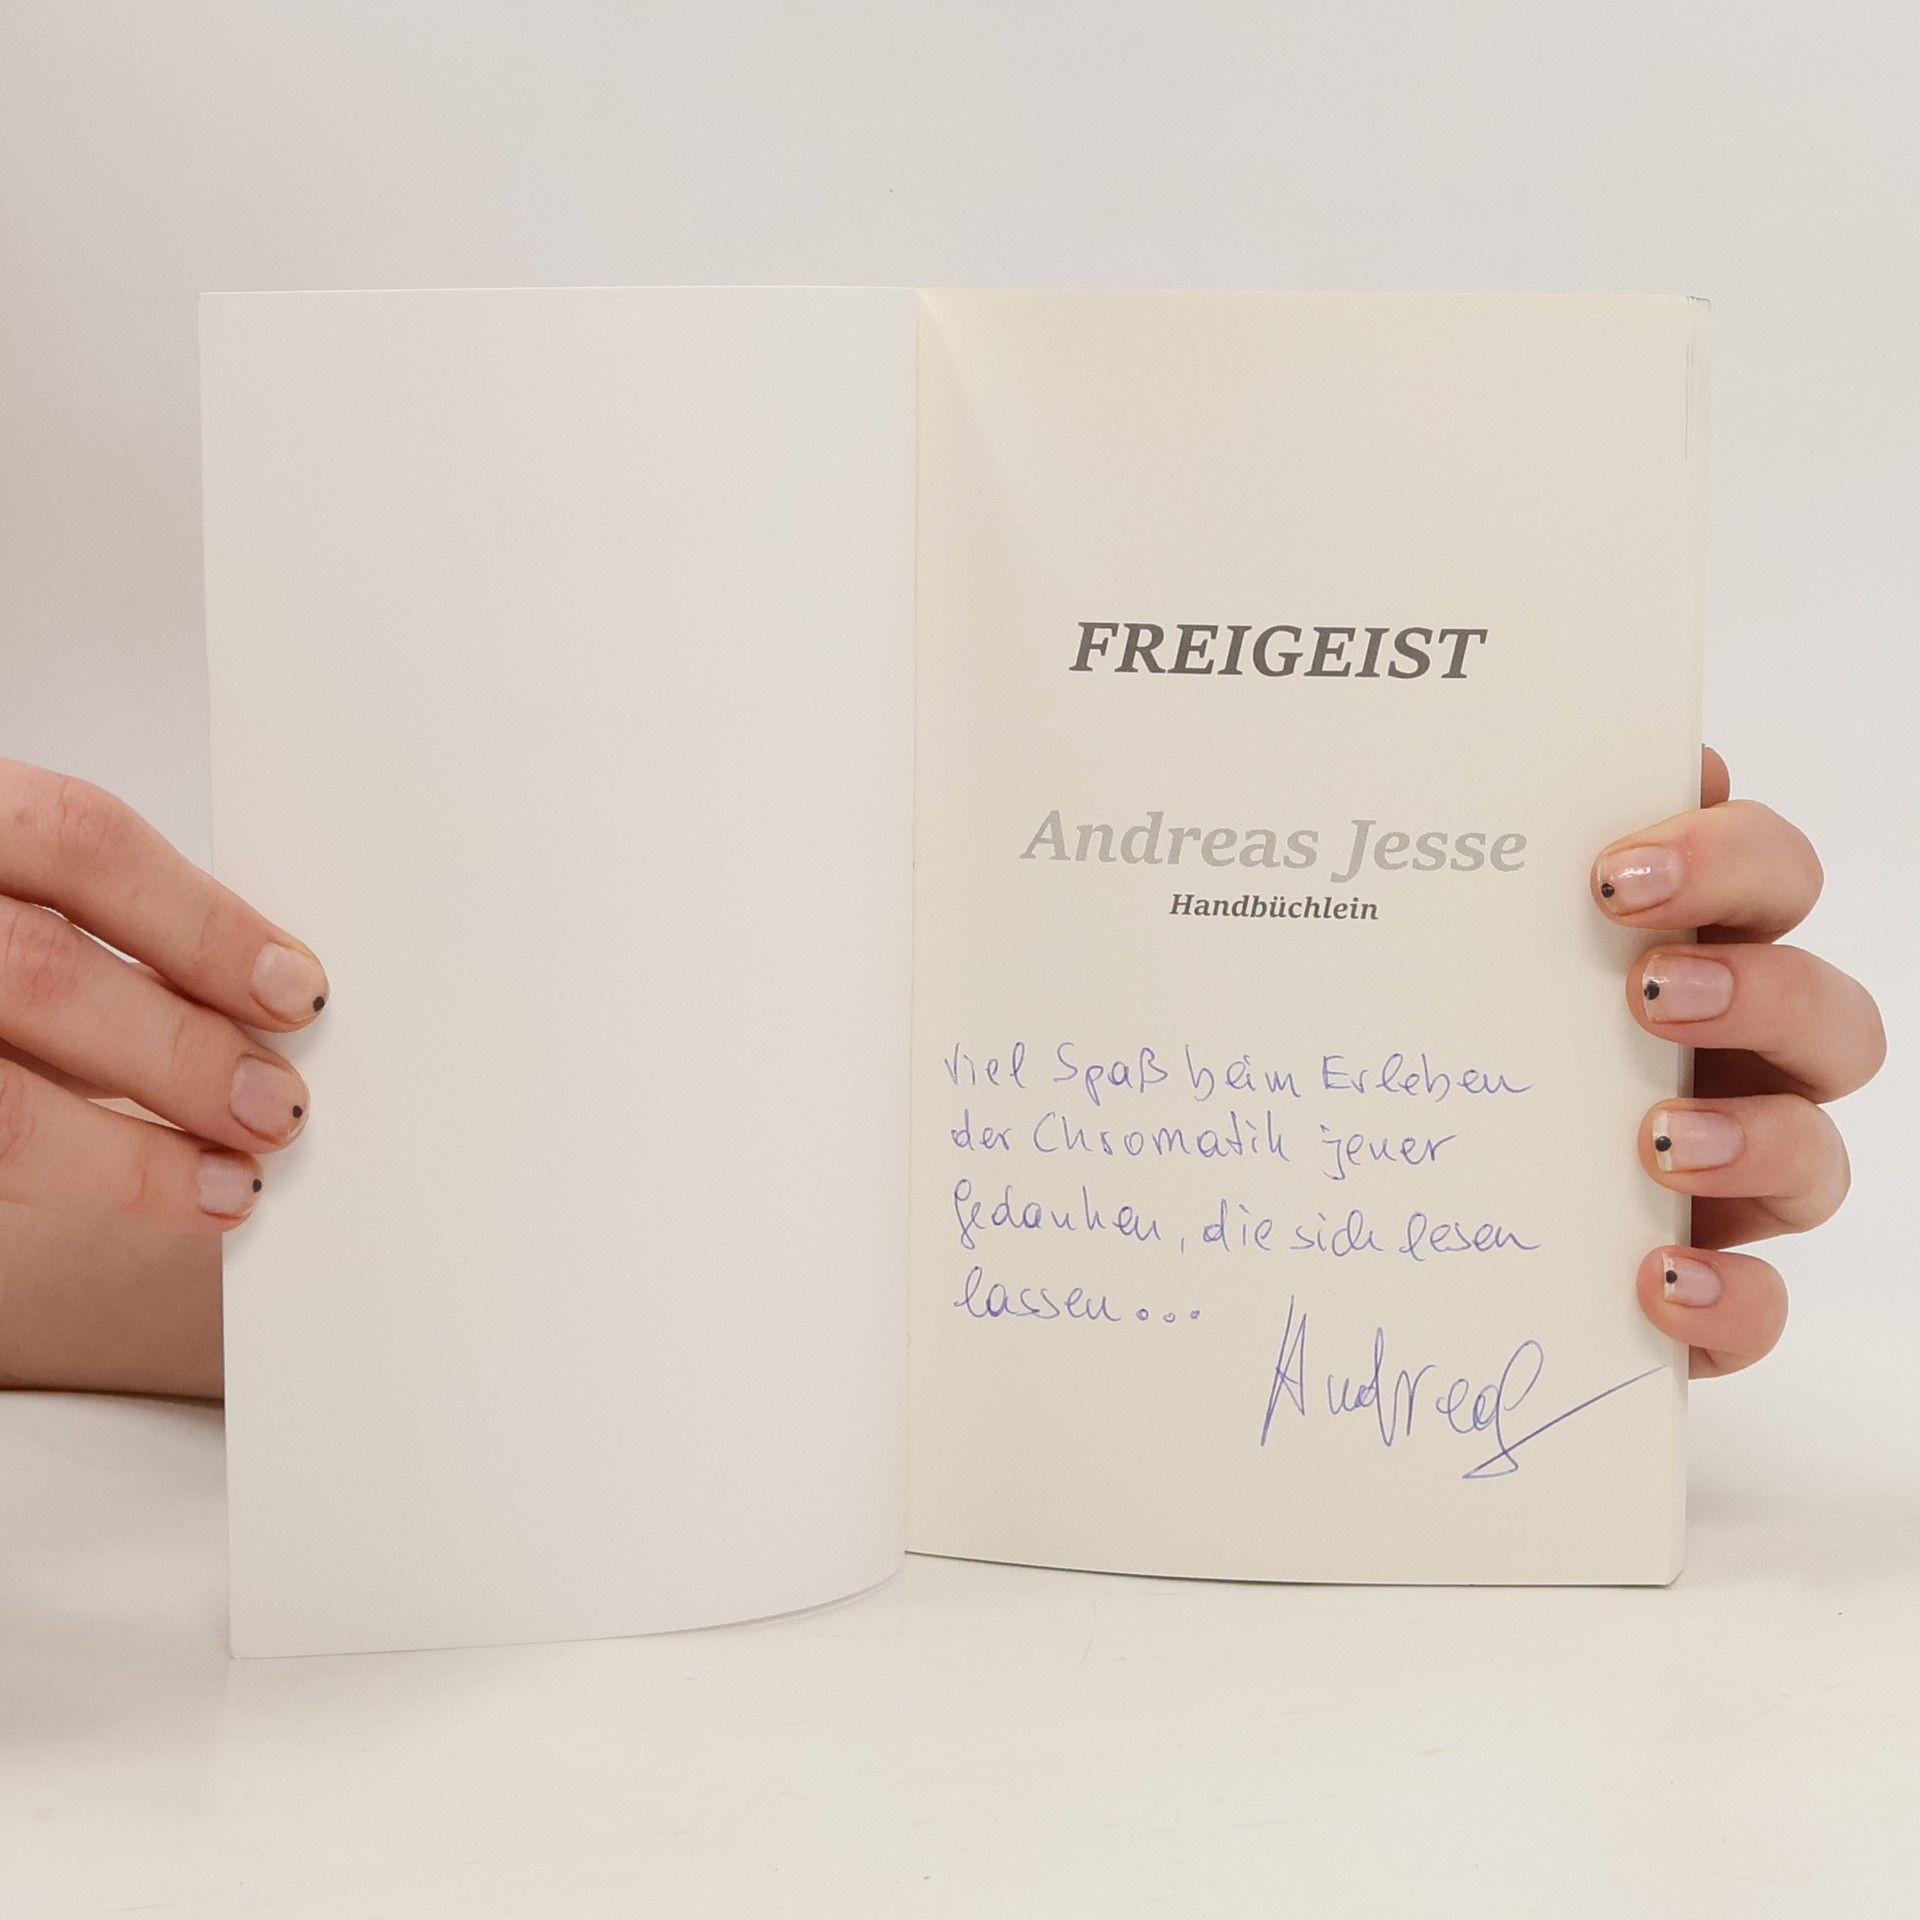 FREIGEIST
Andreas Jesse
Handbüchlein
Viel Spaß beim Erleben
der Chromatik jener
Gedanken, die sich lesen
lassen...
Andreas